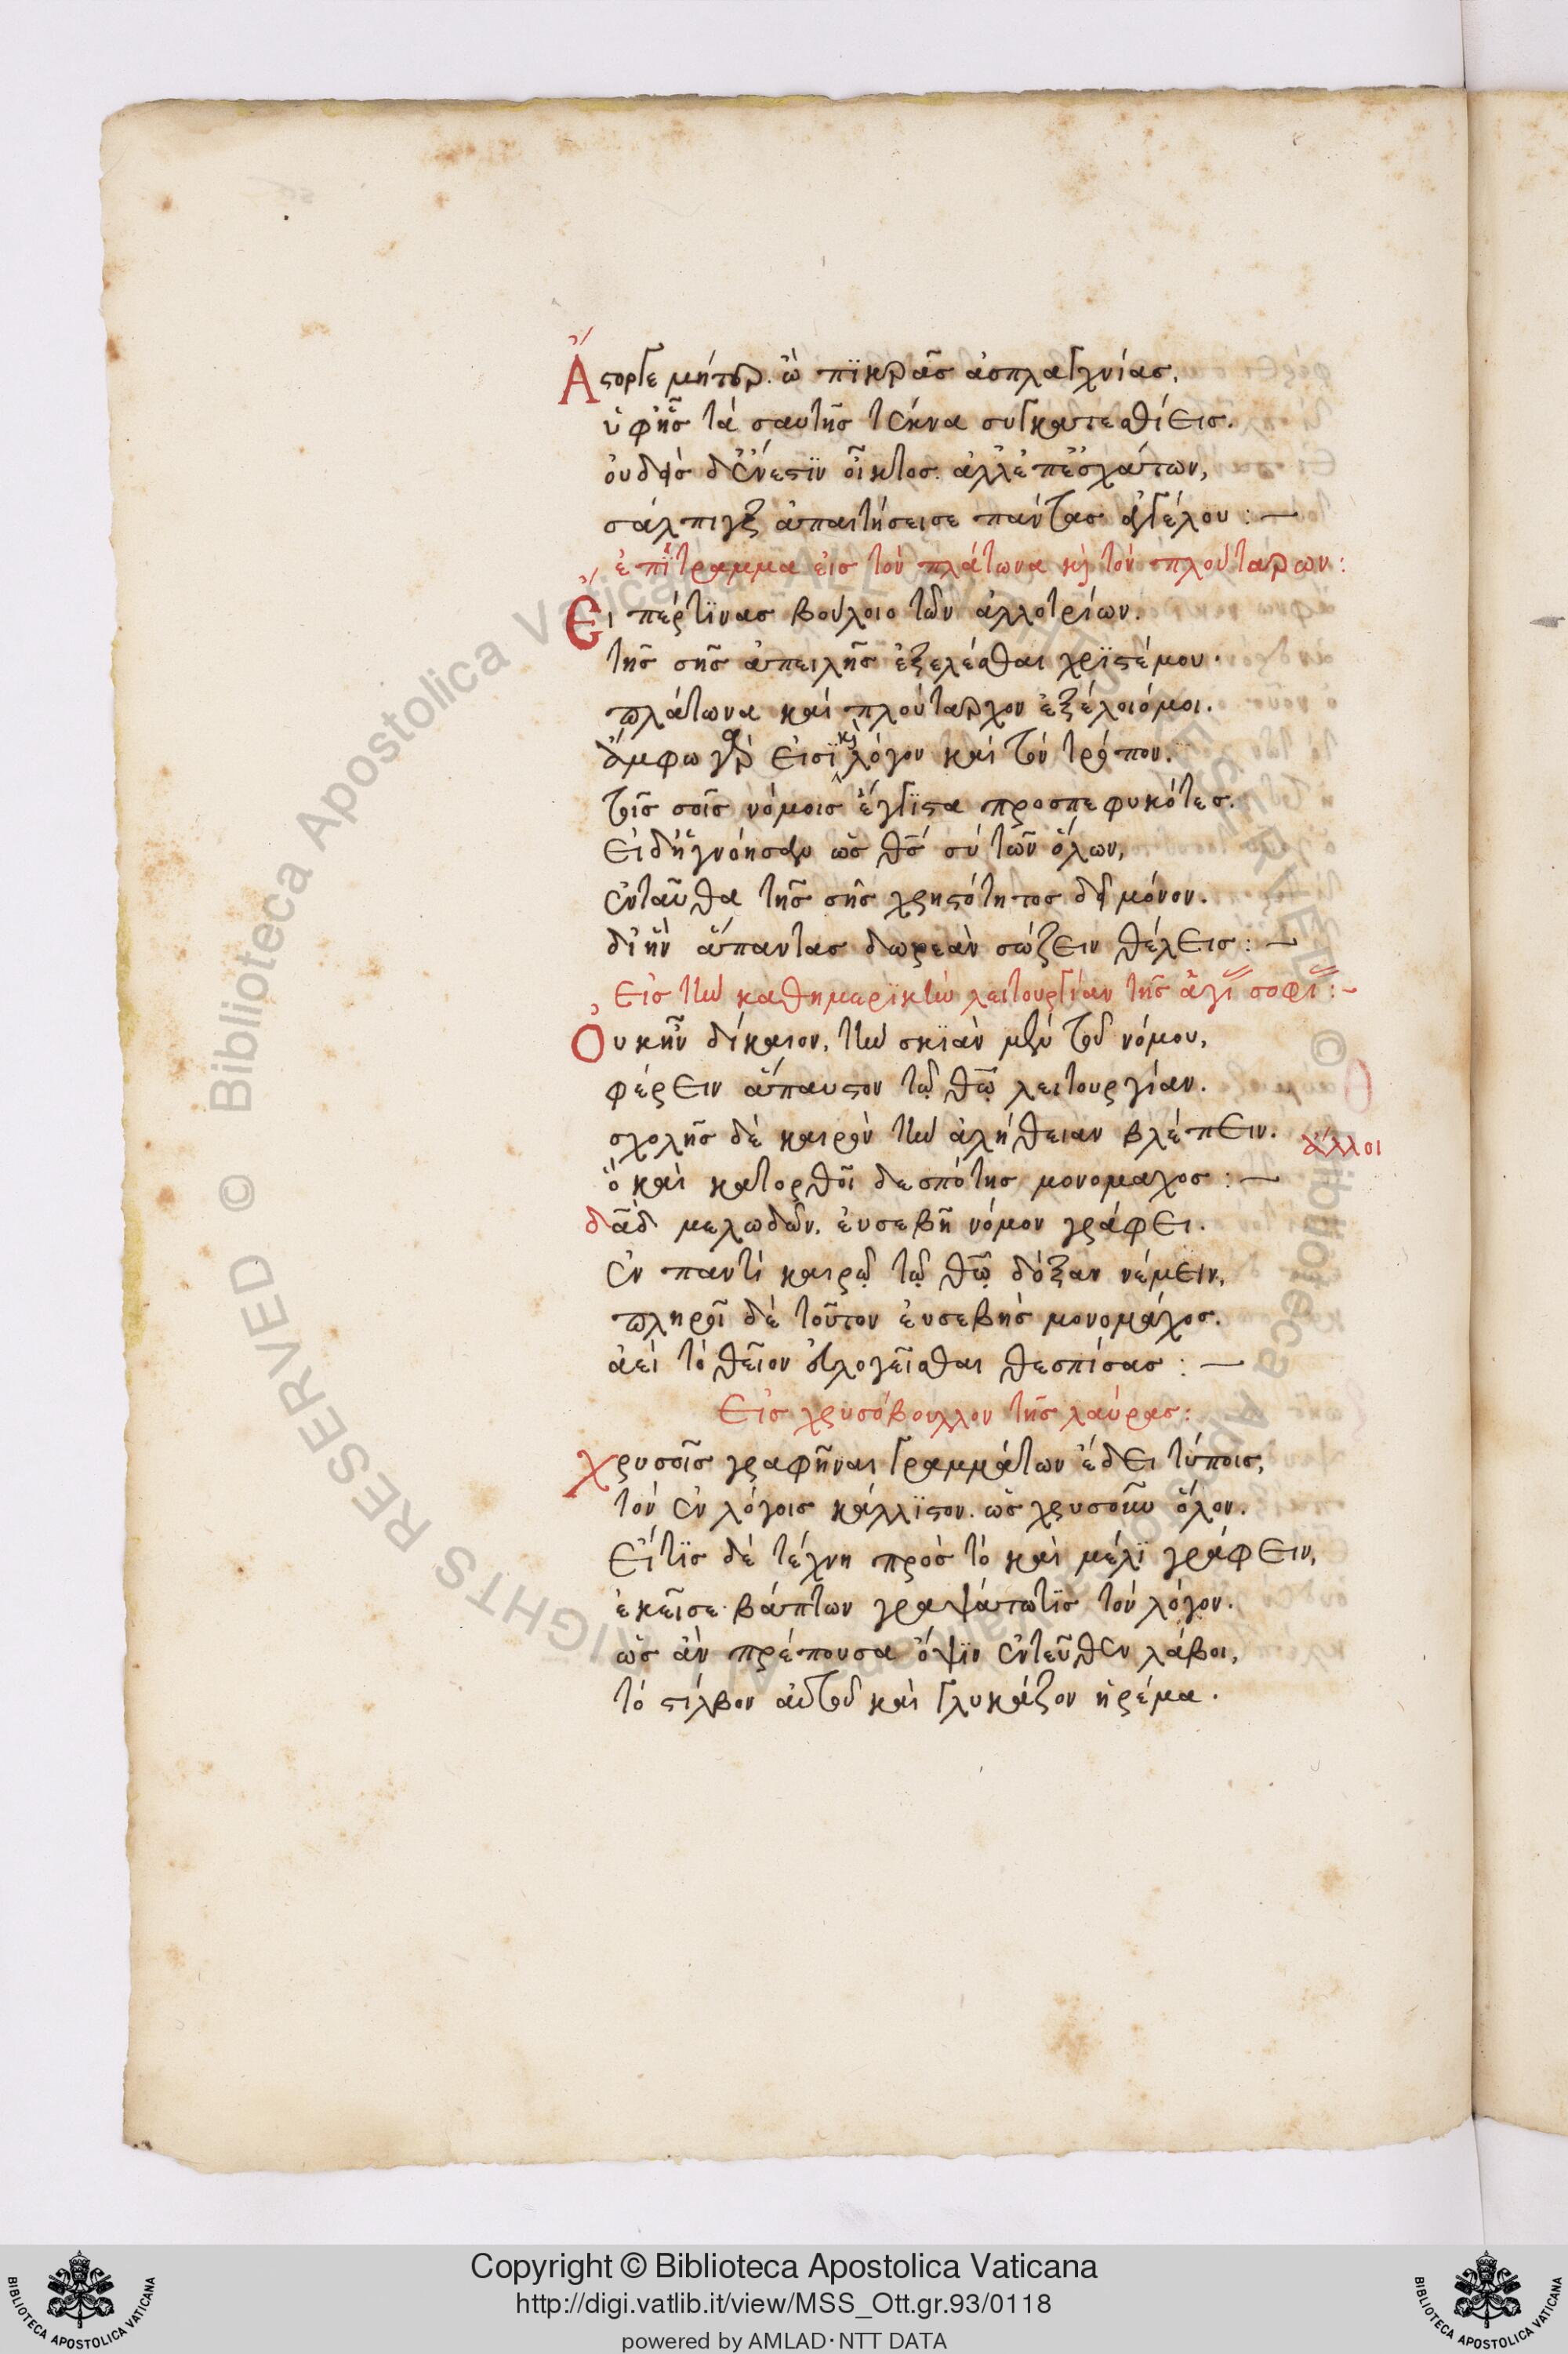 Ἄστοργε μήτηρ. ὦ πϊκρᾶς ἀσπλαγχνίας,
ὑφῆς τὰ σαυτῆς τέκνα συγκατεσθίεις.
οὐδεὶς δ' ἔνεστϊν οἶκτος. ἀλλ' ἐπ' ἐσχάτων,
σάλπιγξ ἀπαιτήσει σε πάντας ἀγγέλου : —
ἐπίγραμμα εἰς τὸν πλάτωνα κ τὸν πλούταρχον :
Εἴπερ τϊνὰς βούλοιο τῶν ἀλλοτρίων.
τῆς σῆς ἀπειλῆς ἐξελέσθαι χϊστέ μου.
πλάτωνα καὶ πλούταρχον ἐξέλοιό μοι.
ἄμφω γάρ εἰσϊ κ λόγον καὶ τὸν τρόπον.
τοῖς σοῖς νόμοις ἔγγϊστα προσπεφυκότες.
εἰ δ' ἠγνόησαν ὡς θς σὺ τῶν ὅλων,
ἐνταῦθα τῆς σῆς χρηστότητος δεῖ μόνον.
δι' ἣν ἅπαντας δωρεὰν σώζειν θέλεις : —
Εἰς τὴν καθημερϊνὴν λειτουργίαν τῆς ἁγί σοφί : —
Οὐκ ἦν δίκαιον, τὴν σκϊὰν μὲν τοῦ νόμου,
φέρειν ἄπαυστον τῷ θῷ λειτουργίαν.
σχολῆς δὲ καιρὸν τὴν ἀλήθειαν βλέπειν.
ἄλλοι
ὃ καὶ κατορθοῖ δεσπότης μονομαχος : —
δᾶδ μελωδῶν. εὐσεβῆ νόμον γράφει.
ἐν παντὶ καιρῷ τῷ θῷ δόξαν νέμειν,
πληροῖ δὲ τοῦτον εὐσεβὴς μονομάχος.
ἀεὶ τὸ θεῖον εὐλογεῖσθαι θεσπίσας : —
Εἰς χρυσόβουλλον τῆς λαύρας :
χρυσοῖς γραφῆναι γραμμάτων ἔδει τύποις,
τὸν ἐν λόγοις κάλλϊστον. ὡς χρυσοῦν ὅλον.
εἴ τϊς δὲ τέχνη πρὸς τὸ καὶ μέλϊ γράφειν,
ἐκεῖσε βάπτων γραψάτω τϊς τὸν λόγον.
ὡς ἂν πρέπουσα ὄψϊν ἐντεῦθεν λάβοι,
τὸ στίλβον αὐτοῦ καὶ γλυκάζον ἠρέμα.
Copyright © Biblioteca Apostolica Vaticana
http://digi.vatlib.it/view/MSS_Ott.gr.93/0118
powered by AMLAD·NTT DATA